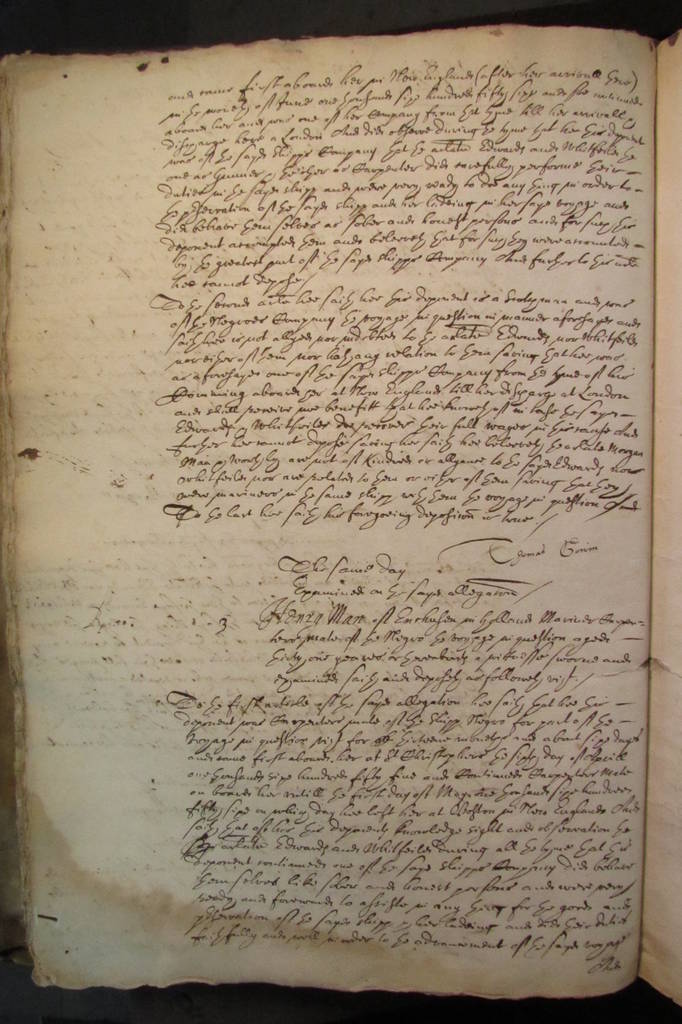 and came first aboard her in New England (after her arrivall there)
in the moneth of June one thousand sixe hundred fifty sixe and soe continued
aboard her and was one of her Company from that tyme till her arrivall &
discharge here at London And did observe during the tyme that hee this deponent
was of the sayd shipps Company that the arlate Edwards and Whitfeilde the
one as Gunner, the other as Carpenter did carefully performe their
duties in the sayd shipp and were very ready to doe any thing in order to
the preservation of the sayd shipp and her ladeing in her sayd voyage and
did behave themselves as sober and honest persons and for such this
deponent accompted them and beleeveth that for such they were accounted
by the greatest part of the sayd shipps Company And further to this arle
hee cannot depose
To the second arle hee saith hee this deponent is a and was
of the Negroes Company the voyage in question in manner aforesayd and
saith hee is not allyed nor indebted to the arlate Edwards nor Whitfeilde
nor either of them nor hath any relation to them saving that hee was
as aforesayd one of the sayd shipps Company from the tyme of his
comming aboard her at New England till her discharge at London
and shall receive noe benefitt that hee knoweth of in case the sayd
Edwards & Whitfeilde doe recover their full wages in this cause And
further hee cannot depose saving hee saith hee beleeveth the arlate Morgan
Man & are not of kindred or allyance to the sayd Edwards nor
Whitfeilde nor are related to them or either of them saving that they
were mariners in the same shipp with them the voyage in question And
To the last hee saith his foregoeing deposition is true
Thomas
The same day
Examined on the sayd allegation
3 Henry Man of Enchusen in Holland Mariner Carpen-
ters mate of the Negro the voyage in question aged
thirty one yeares or thereabouts a witnesse sworne and
examined saith and deposeth as followeth vizt.
To the first article of the sayd allegation hee saith that hee this
deponent was Carpenters mate of the shipp Negro for part of the
voyage in question vizt for thirteene moneths and about sixe dayes
and came first aboard her at St Christophers the sixth day of Aprill
one thousand sixe hundred fifty five and continued Carpenters Mate
on board her untill the first day of May one thousand sixe hundred
fifty sixe on which day hee left her at Boston in New England And
saith that of his this deponents knowledge sight and observation the
arlate Edwards and Whitfeilde during all the tyme that this
deponent continued one of the sayd shipps Company did behave
themselves like sober and honest persons and were very
ready and forwards to assiste in any thing for the good and
preservation of the sayd shipp & her ladeing and did their duties
faithfully and well in order to the advancement of the sayd voyage
And